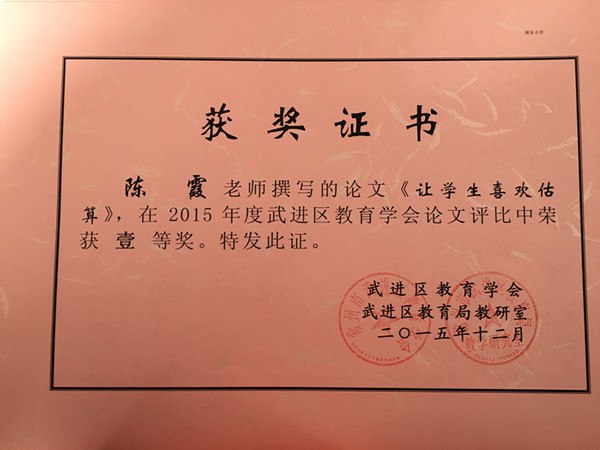 城东小学
获奖证书
陈霞老师撰写的论文《让学生喜欢估
算》，在2015年度武进区教育学会论文评比中荣
获壹等奖。特发此证。
武进区教育学会
武进区教育局教研室
二〇一五年十二月